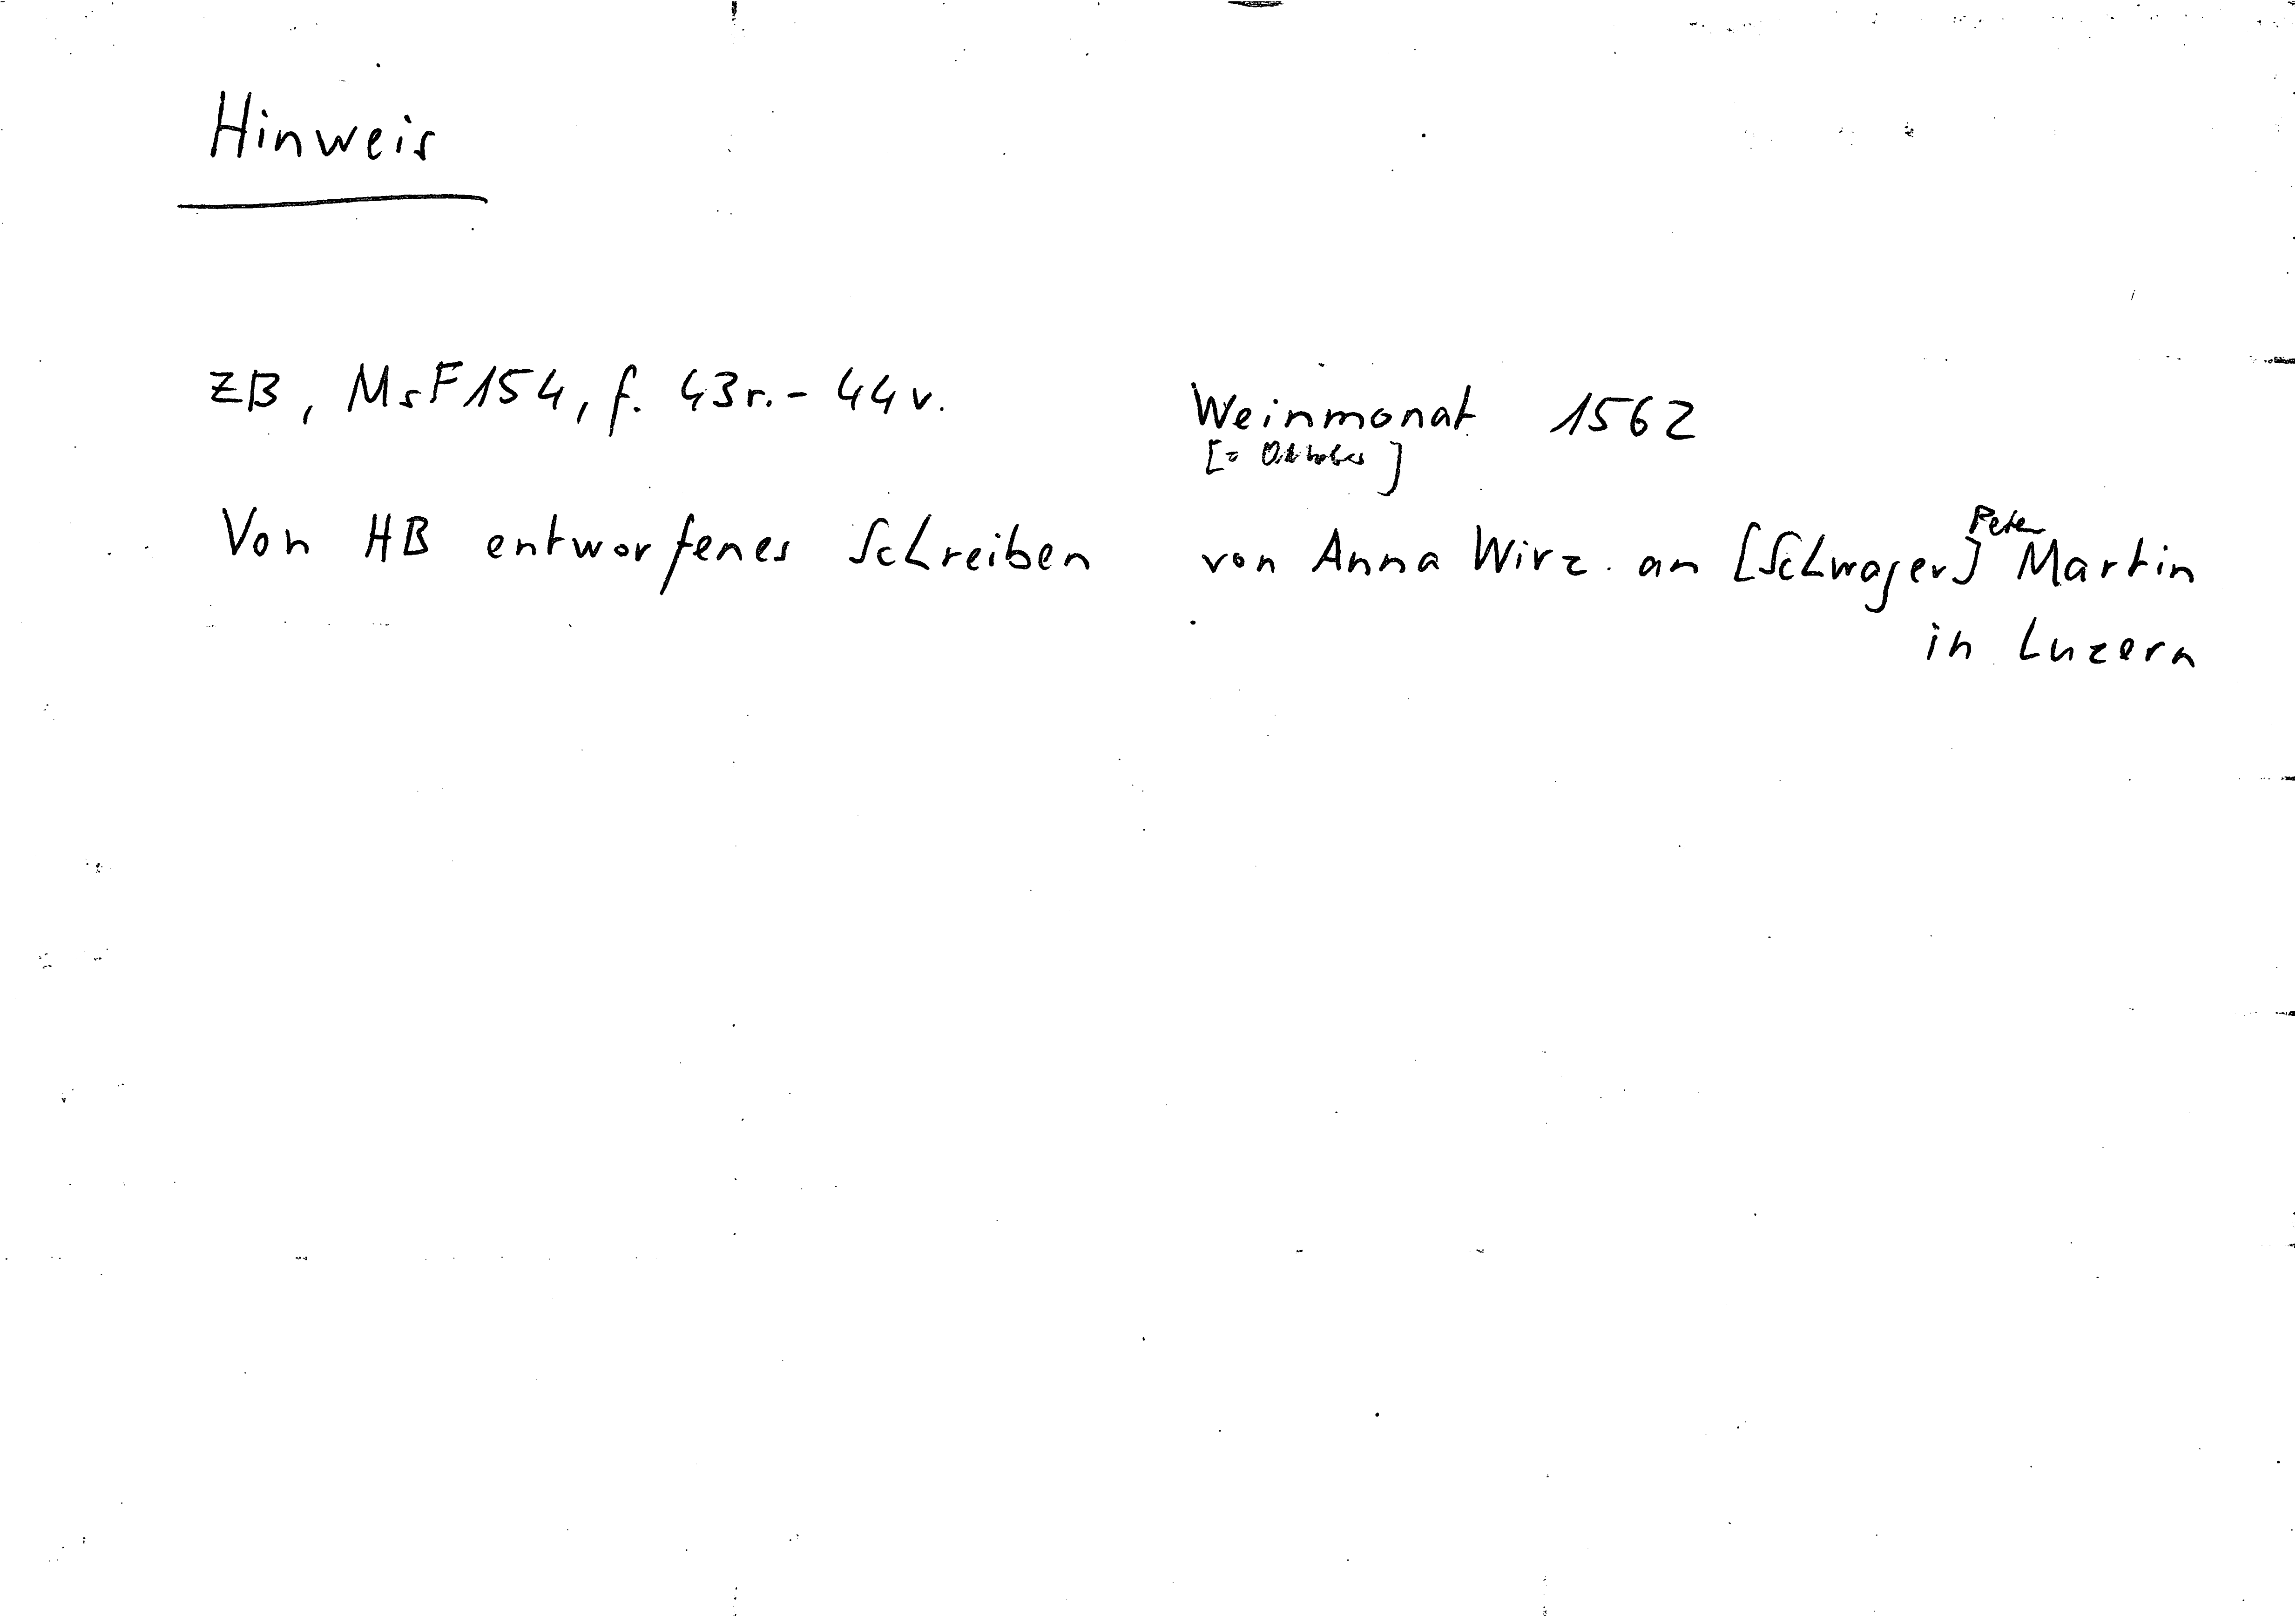 Hinweis
ZB, Ms F 154, f. 43r.-44v. Weinmonat 1562
[= Oktober]
Von HB entworfenes Schreiben von Anna Wirz an [Schwager] Peter Martin
in Luzern